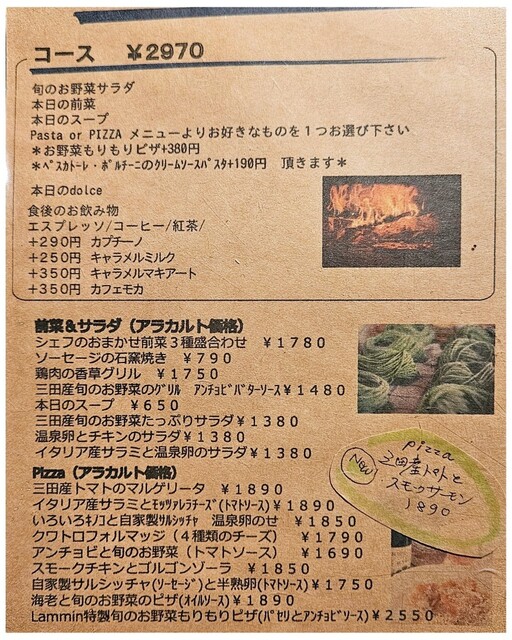 コース ￥2970
旬のお野菜サラダ
本日の前菜
本日のスープ
Pasta or PIZZA メニューよりお好きなものを１つお選び下さい
＊お野菜もりもりピザ+380円
＊ﾍﾟｽｶﾄｰﾚ・ﾎﾟﾙﾁｰﾆのｸﾘｰﾑｿｰｽﾊﾟｽﾀ+190円 頂きます＊
本日のdolce
食後のお飲み物
エスプレッソ/コーヒー/紅茶/
+290円 カプチーノ
+250円 キャラメルミルク
+350円 キャラメルマキアート
+350円 カフェモカ
前菜＆サラダ（アラカルト価格）
シェフのおまかせ前菜３種盛合わせ ￥1780
ソーセージの石窯焼き ￥790
鶏肉の香草グリル ￥1750
三田産旬のお野菜のｸﾞﾘﾙ ｱﾝﾁｮﾋﾞﾊﾞﾀｰｿｰｽ￥1480
本日のスープ ￥650
三田産旬のお野菜たっぷりサラダ￥1380
温泉卵とチキンのサラダ￥1380
イタリア産サラミと温泉卵のサラダ￥1380
Pizza（アラカルト価格）
三田産トマトのマルゲリータ ￥1890
イタリア産サラミとﾓｯﾂｧﾚﾗﾁｰｽﾞ(ﾄﾏﾄｿｰｽ)￥1890
いろいろｷﾉｺと自家製ｻﾙｼｯﾁｬ 温泉卵のせ ￥1850
クワトロフォルマッジ（４種類のチーズ） ￥1790
アンチョビと旬のお野菜（トマトソース） ￥1690
スモークチキンとゴルゴンゾーラ ￥1850
自家製サルシッチャ(ｿｰｾｰｼﾞ)と半熟卵(ﾄﾏﾄｿｰｽ)￥1750
海老と旬のお野菜のピザ(ｵｲﾙｿｰｽ)￥1890
Lammin特製旬のお野菜もりもりピザ(ﾊﾟｾﾘとｱﾝﾁｮﾋﾞｿｰｽ)￥2550
pizza
NEW
三田産トマトと
スモークサーモン
1890